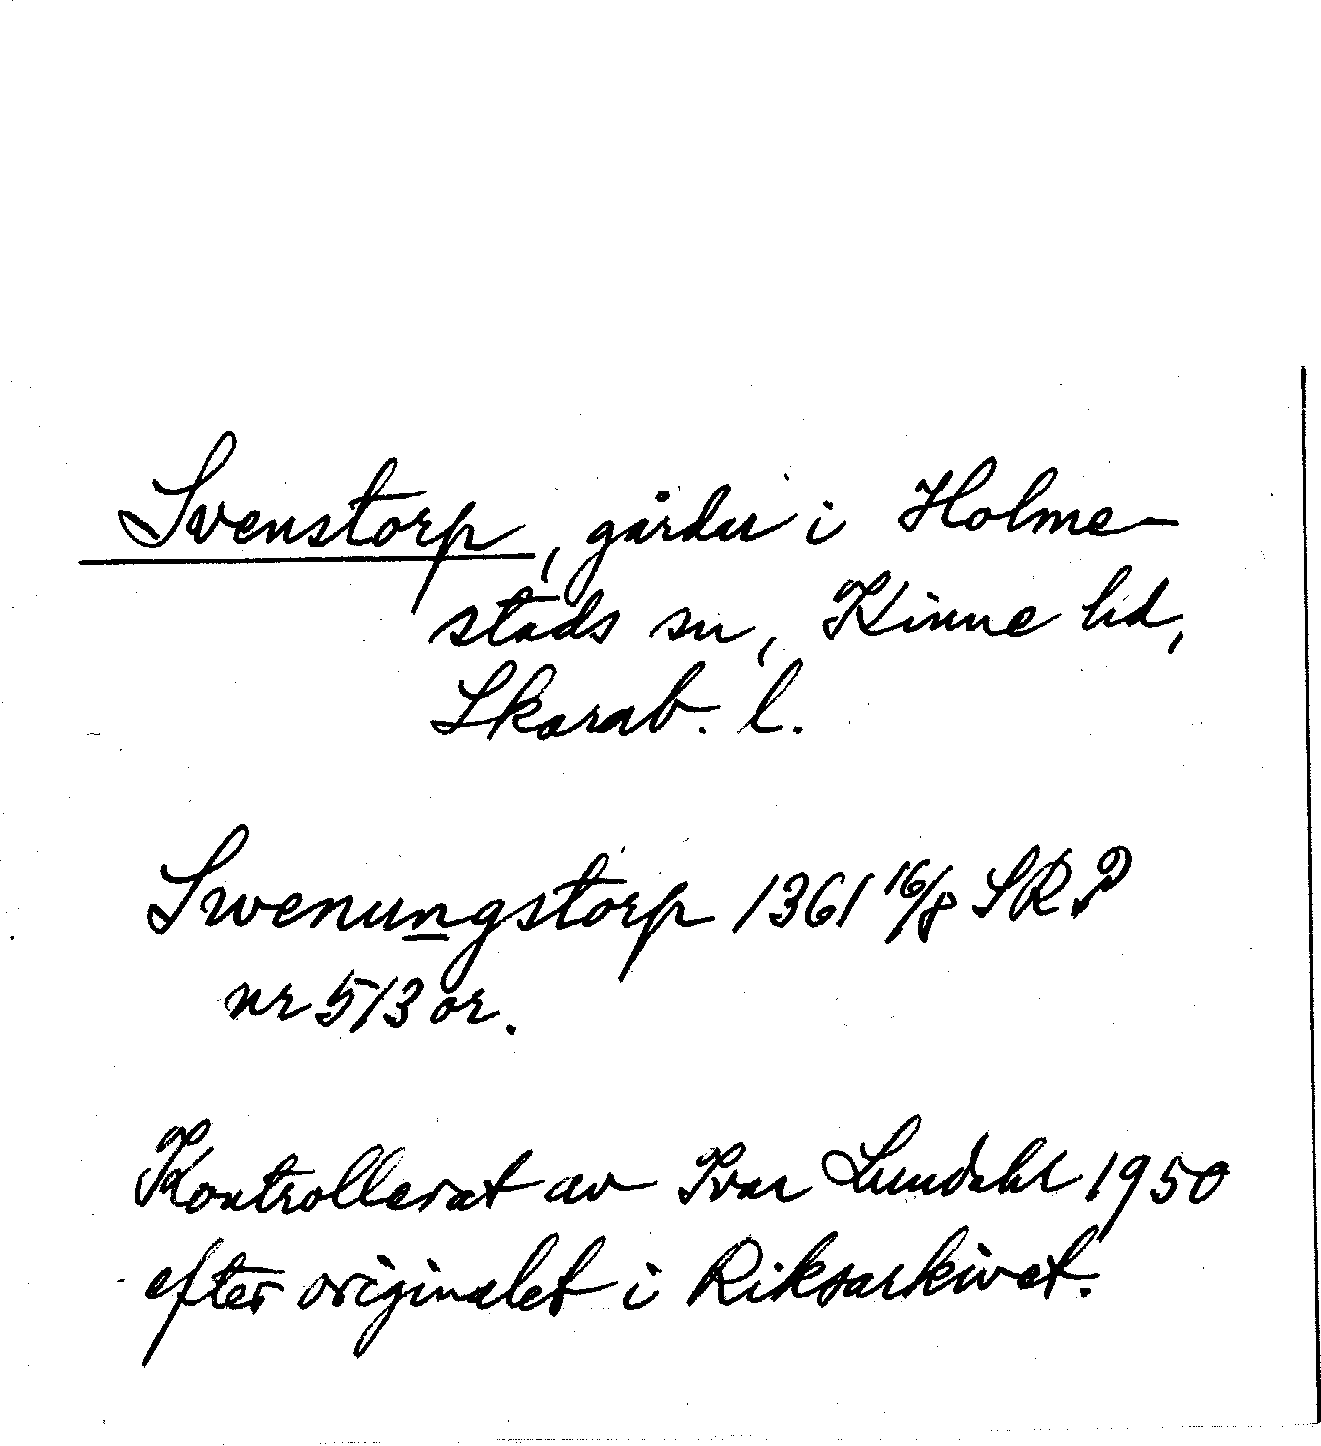 Svenstorp, gårdar i Holme-
stads sn, Kinne hd,
Skarab. l.
Swenungstorp 1361 16/8 SRP
nr 513 or.
Kontrollerat av Ivar Lundahl 1950
efter originalet i Riksarkivet.